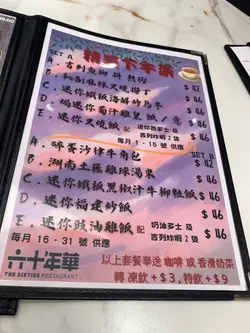 精選下午茶
SET A
A. 吉列魚柳 拼 熱狗 $42
B. 秘制麻辣叉燒撈丁 $46
C. 迷你鐵板海鮮炒烏冬 $46
D. 焗迷你葡汁雞皇飯／意 $46
E. 迷你叉燒飯 配 迷你西多士 及 吉列炸蝦 2 隻 $46
每月 1 - 15 號 供應
SET B
A. 碎蛋沙律牛角包 $42
B. 湖南土匪雞球湯米 $46
C. 迷你鐵板黑椒汁牛柳粒飯 $46
D. 迷你福建炒飯 $46
E. 迷你豉油雞飯 配 奶油多士 及 吉列炸蝦 2 隻 $46
每月 16 - 31 號 供應
六十年華
THE SIXTIES RESTAURANT
以上套餐奉送 咖啡 或 香滑奶茶
轉 凍飲 + $3,特飲 + $9